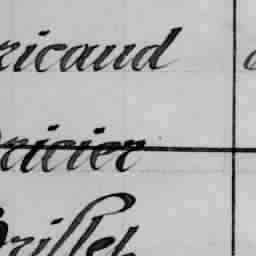 ricaud
ricier
rillet